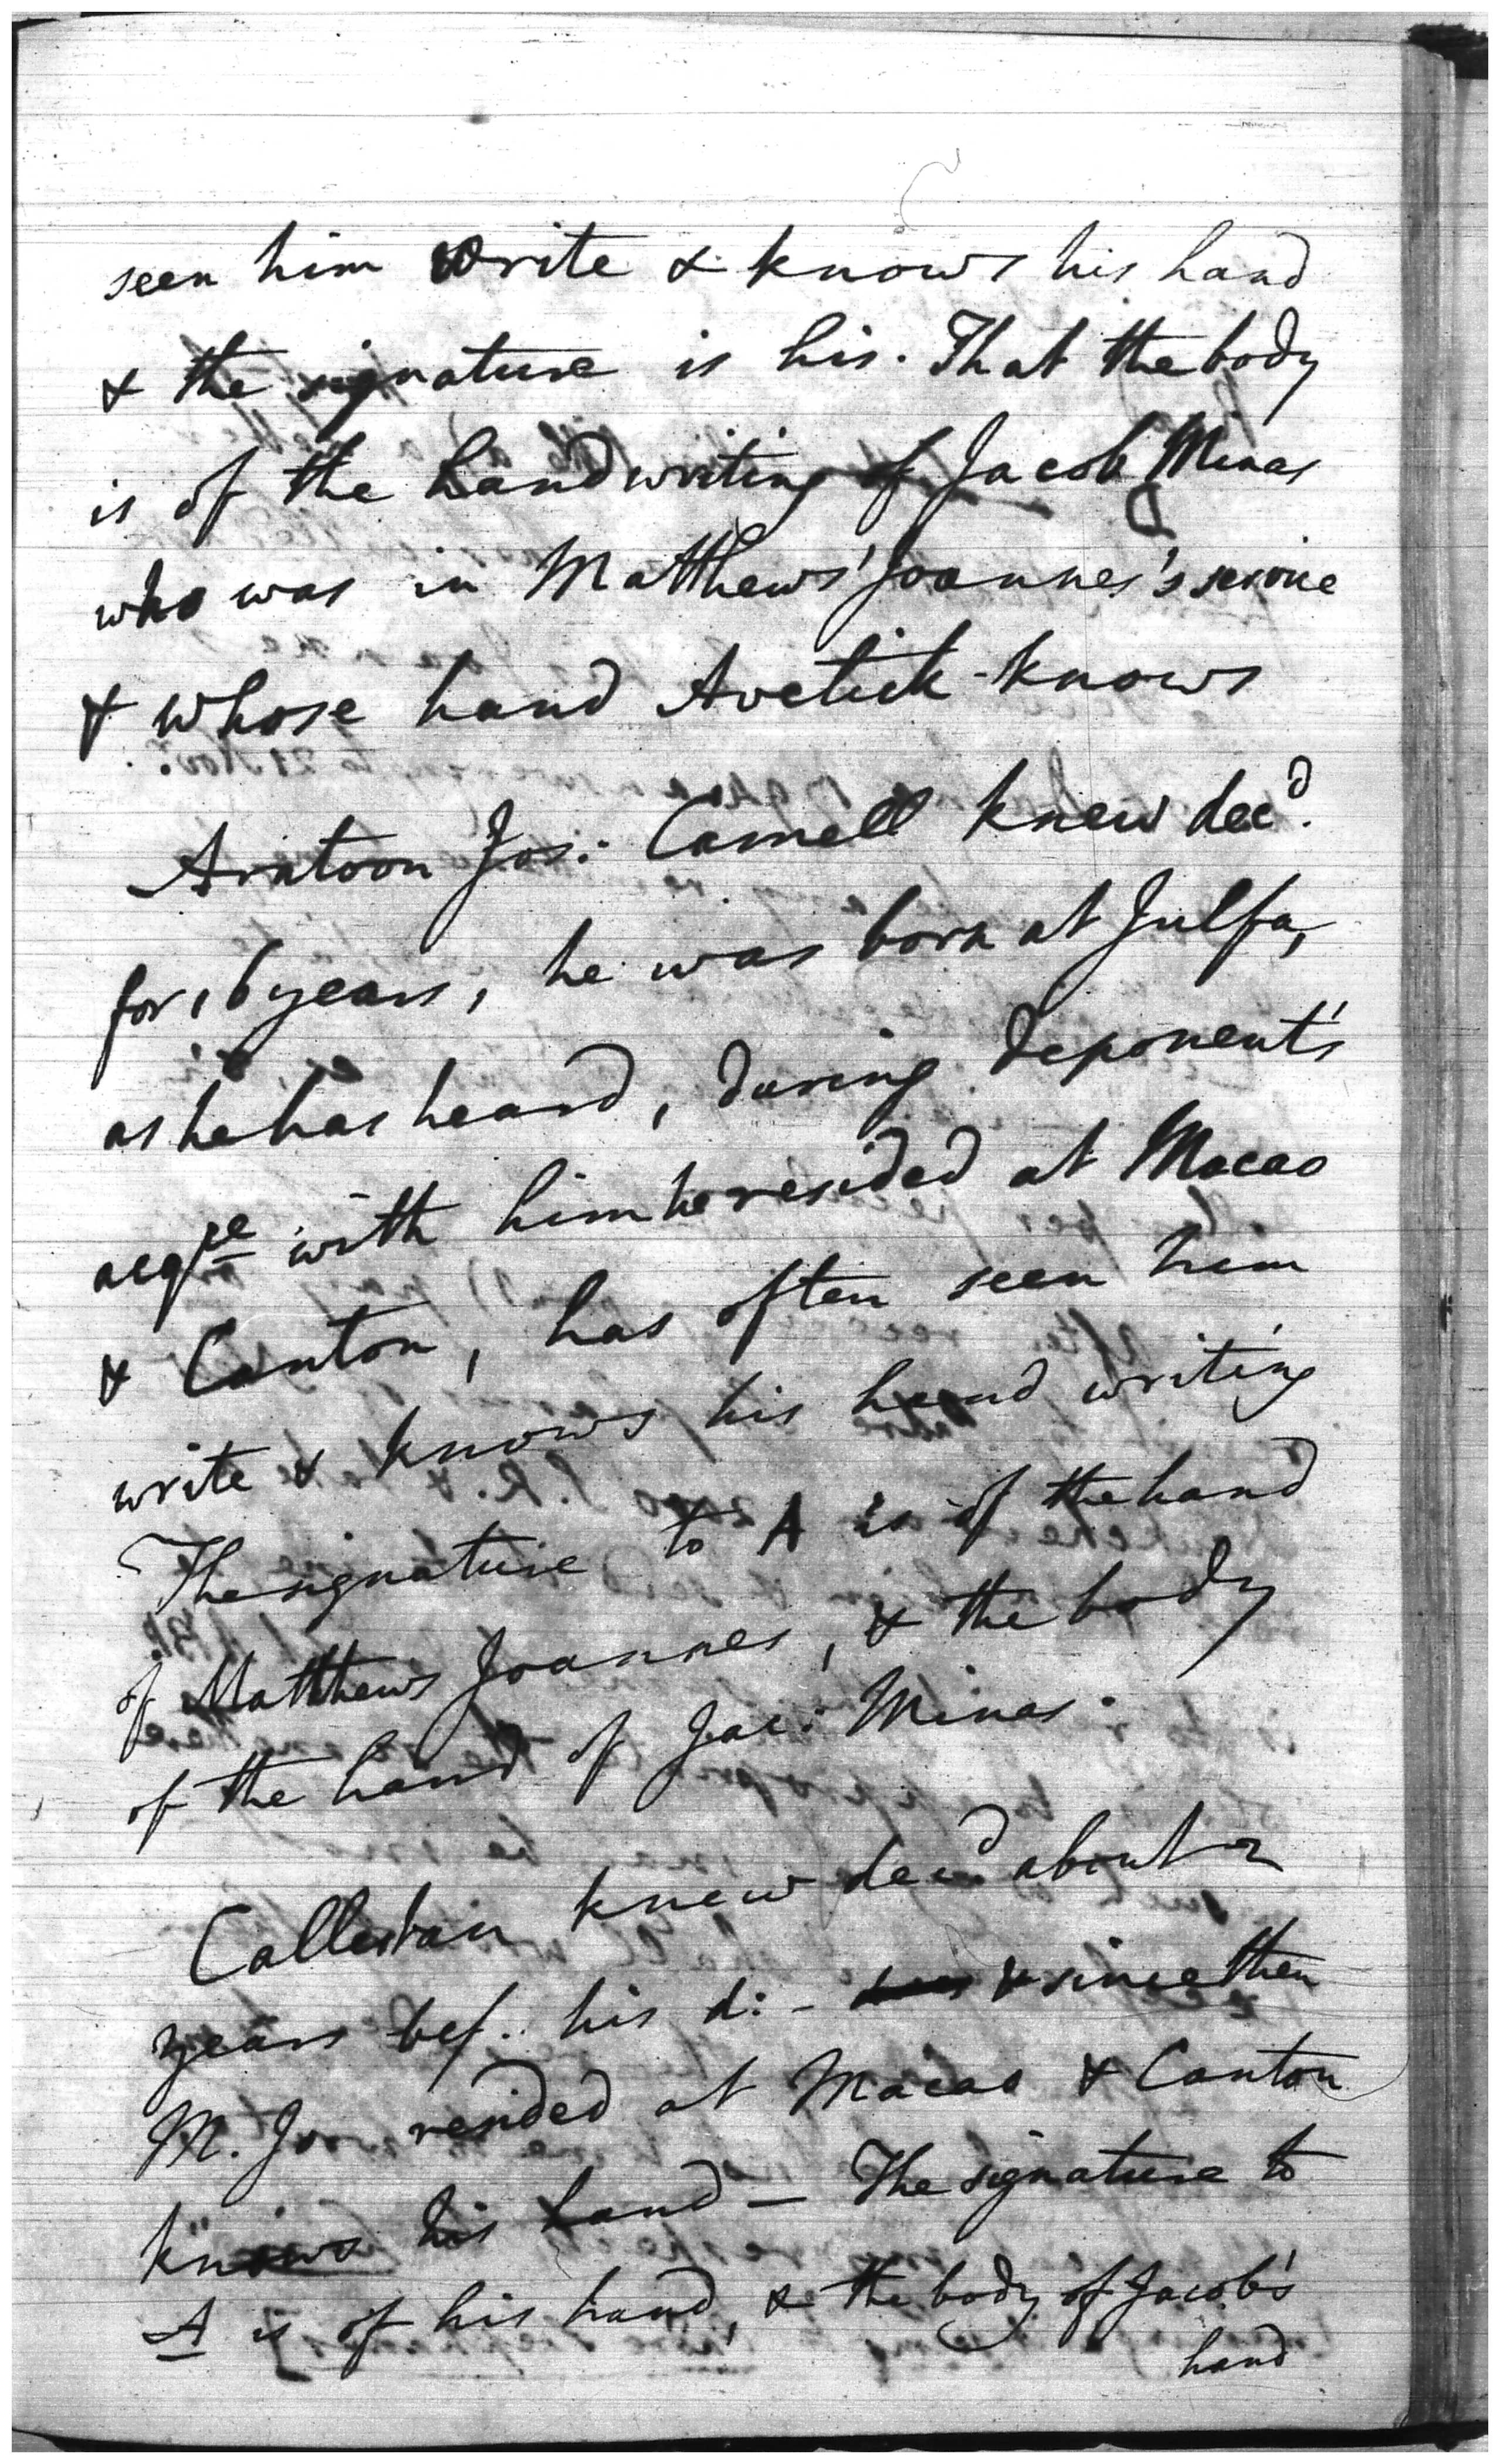 seen him write & knows his hand
& the signature is his. That the body
is of the handwriting of Jacob Minas
who was in Matthews Joannes's service
& whose hand Avetick knows
Aratoon Jos: Camell knew decd.
for 16 years, he was born at Julfa,
as he has heard, during deponent's
acqce with him he resided at Macao
& Canton, has often seen him
write & knows his hand writing
The signature to A is of the hand
of Matthews Joannes, & the body
of the hand of Jac: Minas.
knew decd about 2
years bef. his d: - & since then
M. Jo: resided at Macao & Canton
knows his hand — The signature to
A is of his hand, & the body of Jacob's
hand